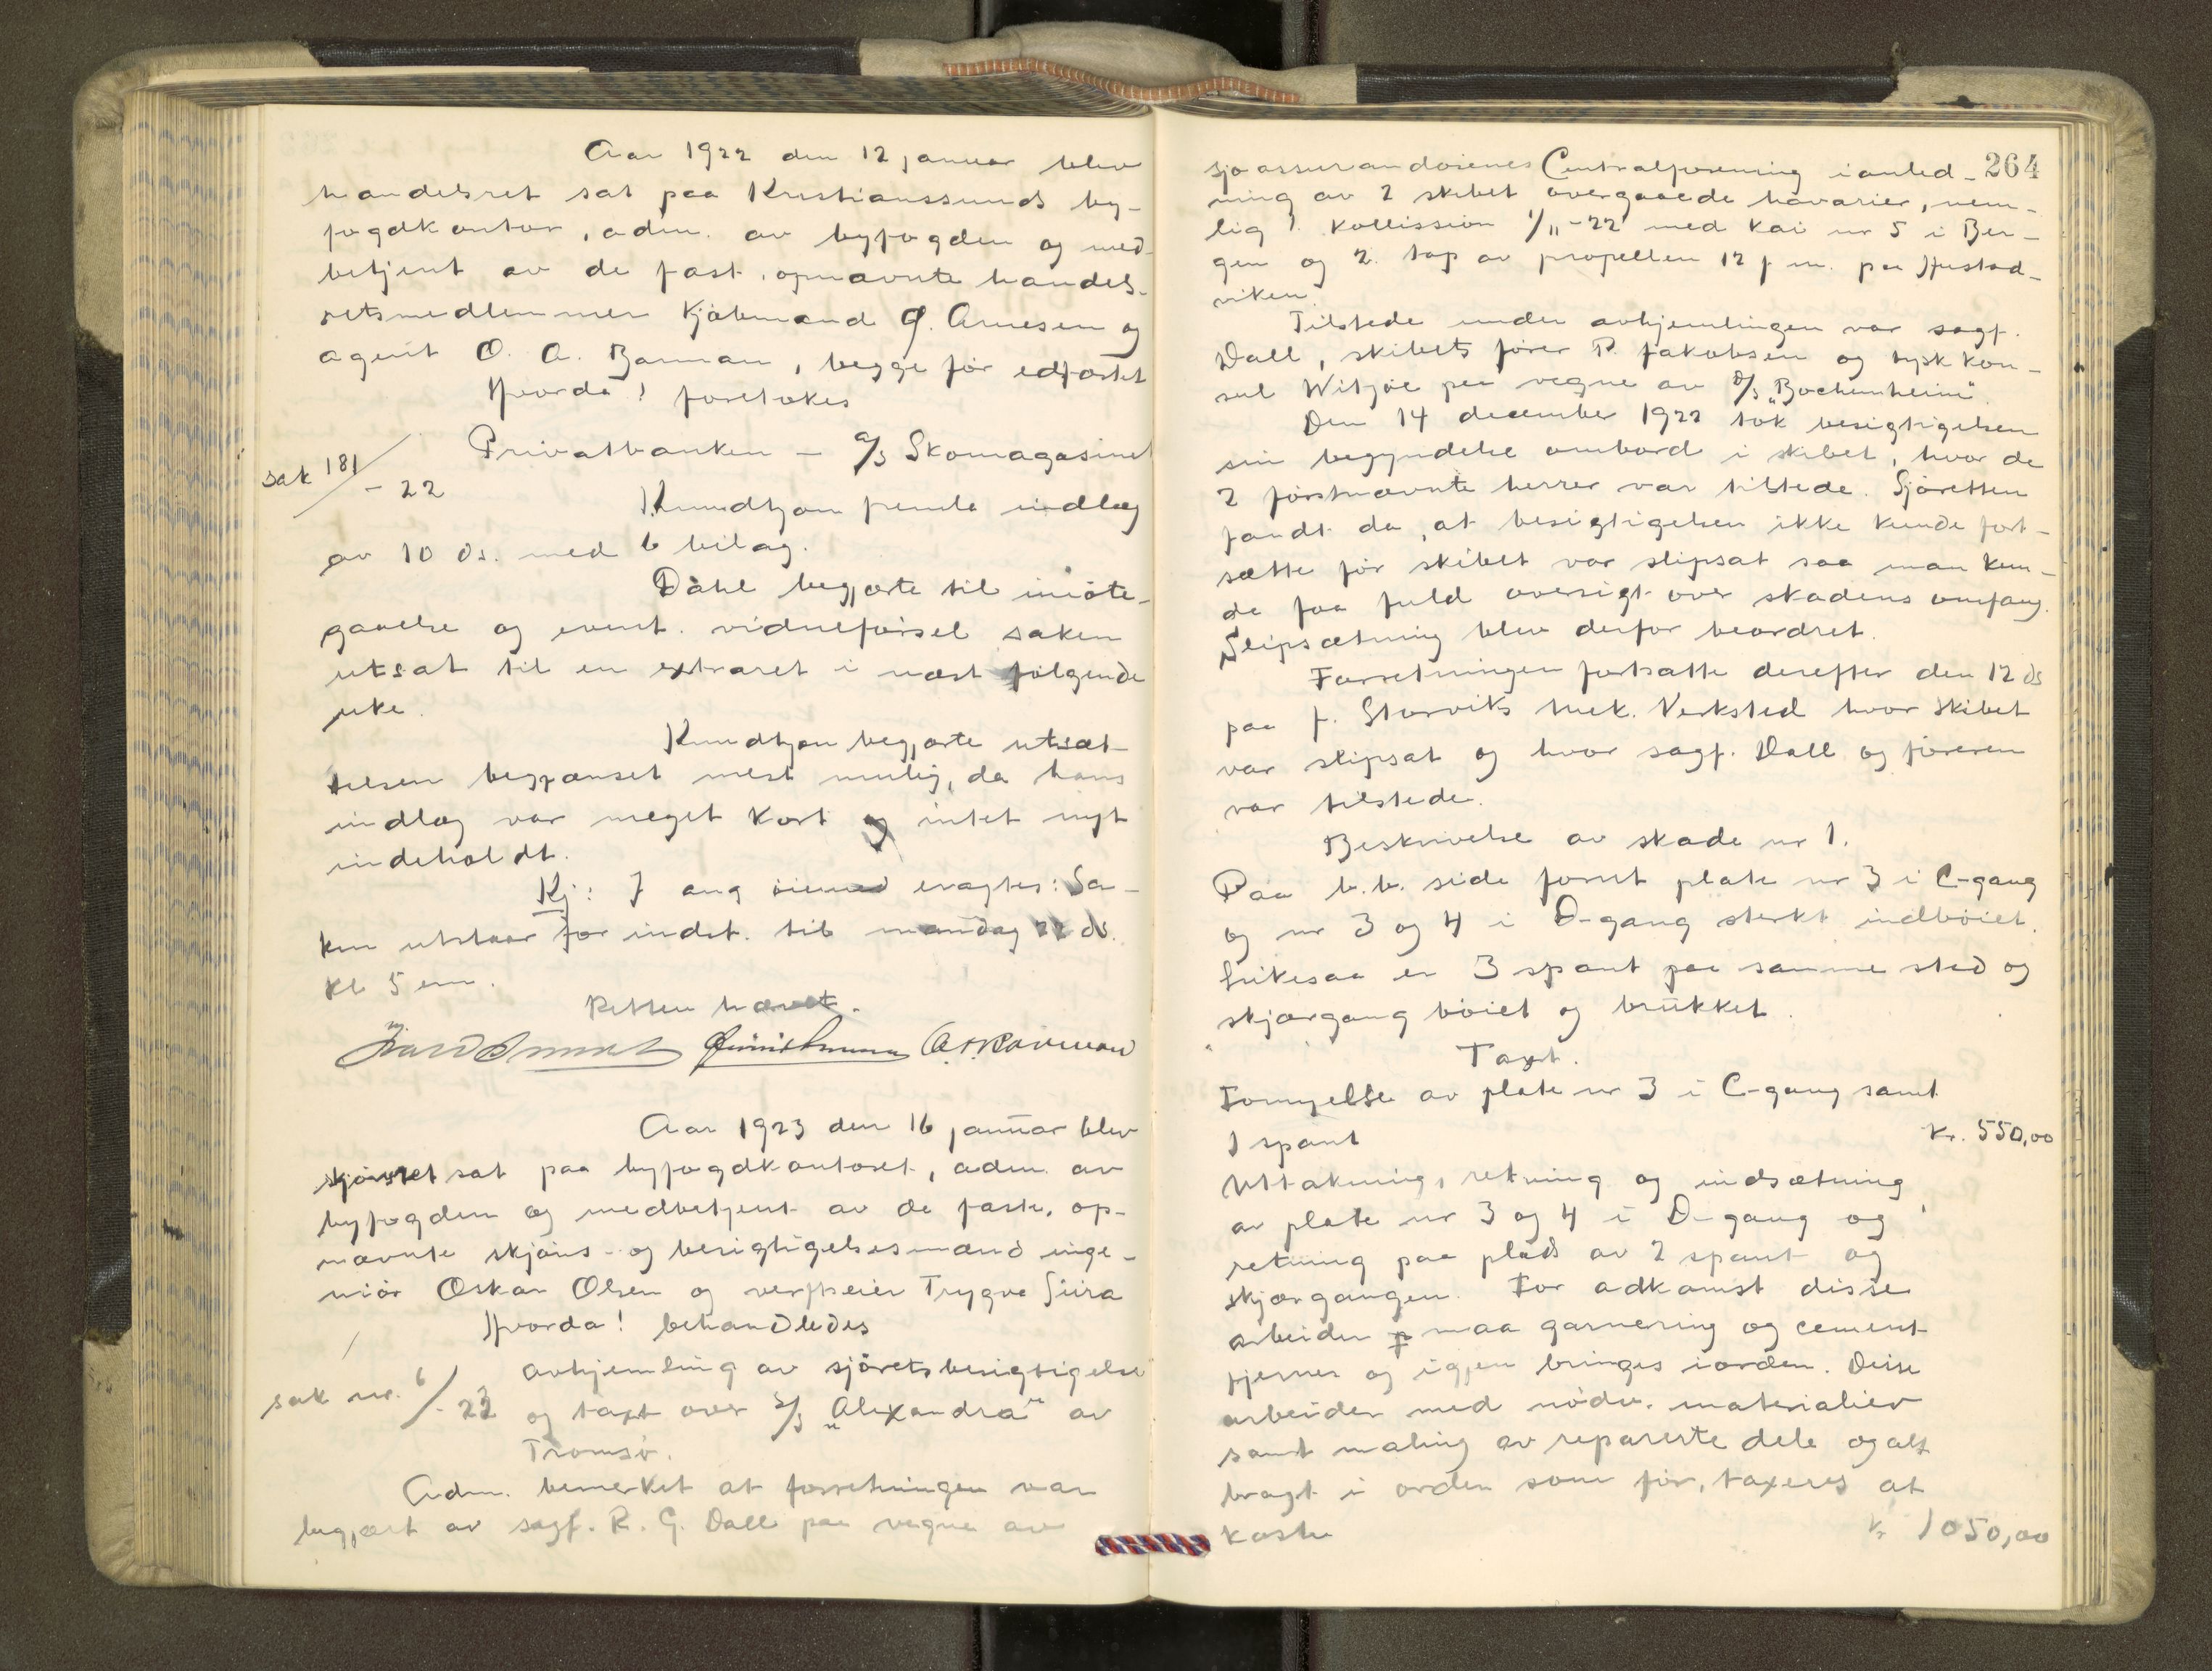 Aar 1922 den 12 januar blev
handelsret sat paa Kristianssunds by-
fogdkontor, adm. av byfogden og med-
betjent av de fast. opnævnte handels-
retsmedlemmer kjøbmand J. Arnesen og
agent O. A. Barman, begge før edfæstet
Hvorda! foretokes
sak 181/-22
Privatbanken - A/S Skomagasinet
Knudtzon fremla indlæg
av 10 ds. med 6 bilag.
Dahl begjærte til imøte-
gaaelse og event. vidneførsel saken
utsat til en extraret i næst følgende
uke.
Knudtzon begjærte utsæt-
telsen begrænset mest mulig, da hans
indlæg var meget kort og intet nyt
indeholdt.
Kj: I ang øiemed eragtes: Sa-
ken utstaar for indst. til mandag 22 ds.
kl 5 em.
Retten hævet.
O. A. Barman
Aar 1923 den 16 januar blev
sjøret sat paa byfogdkontoret, adm. av
byfogden og medbetjent av de faste, op-
nævnte skjøns- og besigtigelsesmænd inge-
niør Oskar Olsen og verftseier Trygve Giira
Hvorda! behandledes
sak nr. 6/-23
avhjemling av sjøretsbesigtigelse
og taxt over S/S "Alexandra" av
Tromsø.
Adm. bemerket at forretningen var
begjært av sagf. R. G. Dall paa vegne av
264
sjøassurandørenes Centralforening i anled-
ning av 2 skibet overgaaede havarier, nem-
lig 1. kollission 1/11-22 med kai nr 5 i Ber-
gen og 2. tap av propellen 12 f m. paa Hustad-
viken.
Tilstede under avhjemlingen var sagf.
Dall, skibets fører P. Jakobsen og tysk kon-
sul Witzøe paa vegne av D/S "Bochenheim".
Den 14 december 1922 tok besigtigelsen
sin begyndelse ombord i skibet, hvor de
2 førstnævnte herrer var tilstede. Sjøretten
fandt da, at besigtigelsen ikke kunde fort-
sætte før skibet var slipsat saa man kun-
de faa fuld oversigt over skadens omfang.
Slipsætning blev derfor beordret.
Forretningen fortsatte derefter den 12 ds
paa J. Storviks mek. Verksted hvor skibet
var slipsat og hvor sagf. Dall og føreren
var tilstede.
Beskrivelse av skade nr 1.
Paa b.b. side forut plate nr 3 i C-gang
og nr 3 og 4 i D-gang sterkt indbøiet.
Likesaa er 3 spant paa samme sted og
skjærgang bøiet og brukket.
Taxt.
Fornyelse av plate nr 3 i C-gang samt
1 spant kr. 550,00
Uttakning, retning og indsætning
av plate nr 3 og 4 i D-gang og
retning paa plads av 2 spant og
skjærgangen. For adkomst disse
arbeider maa garnering og cement
fjernes og igjen bringes i orden. Disse
arbeider med nødv. materialier
samt maling av reparerte dele og alt
bragt i orden som før, taxeres at
koste kr 1050,00